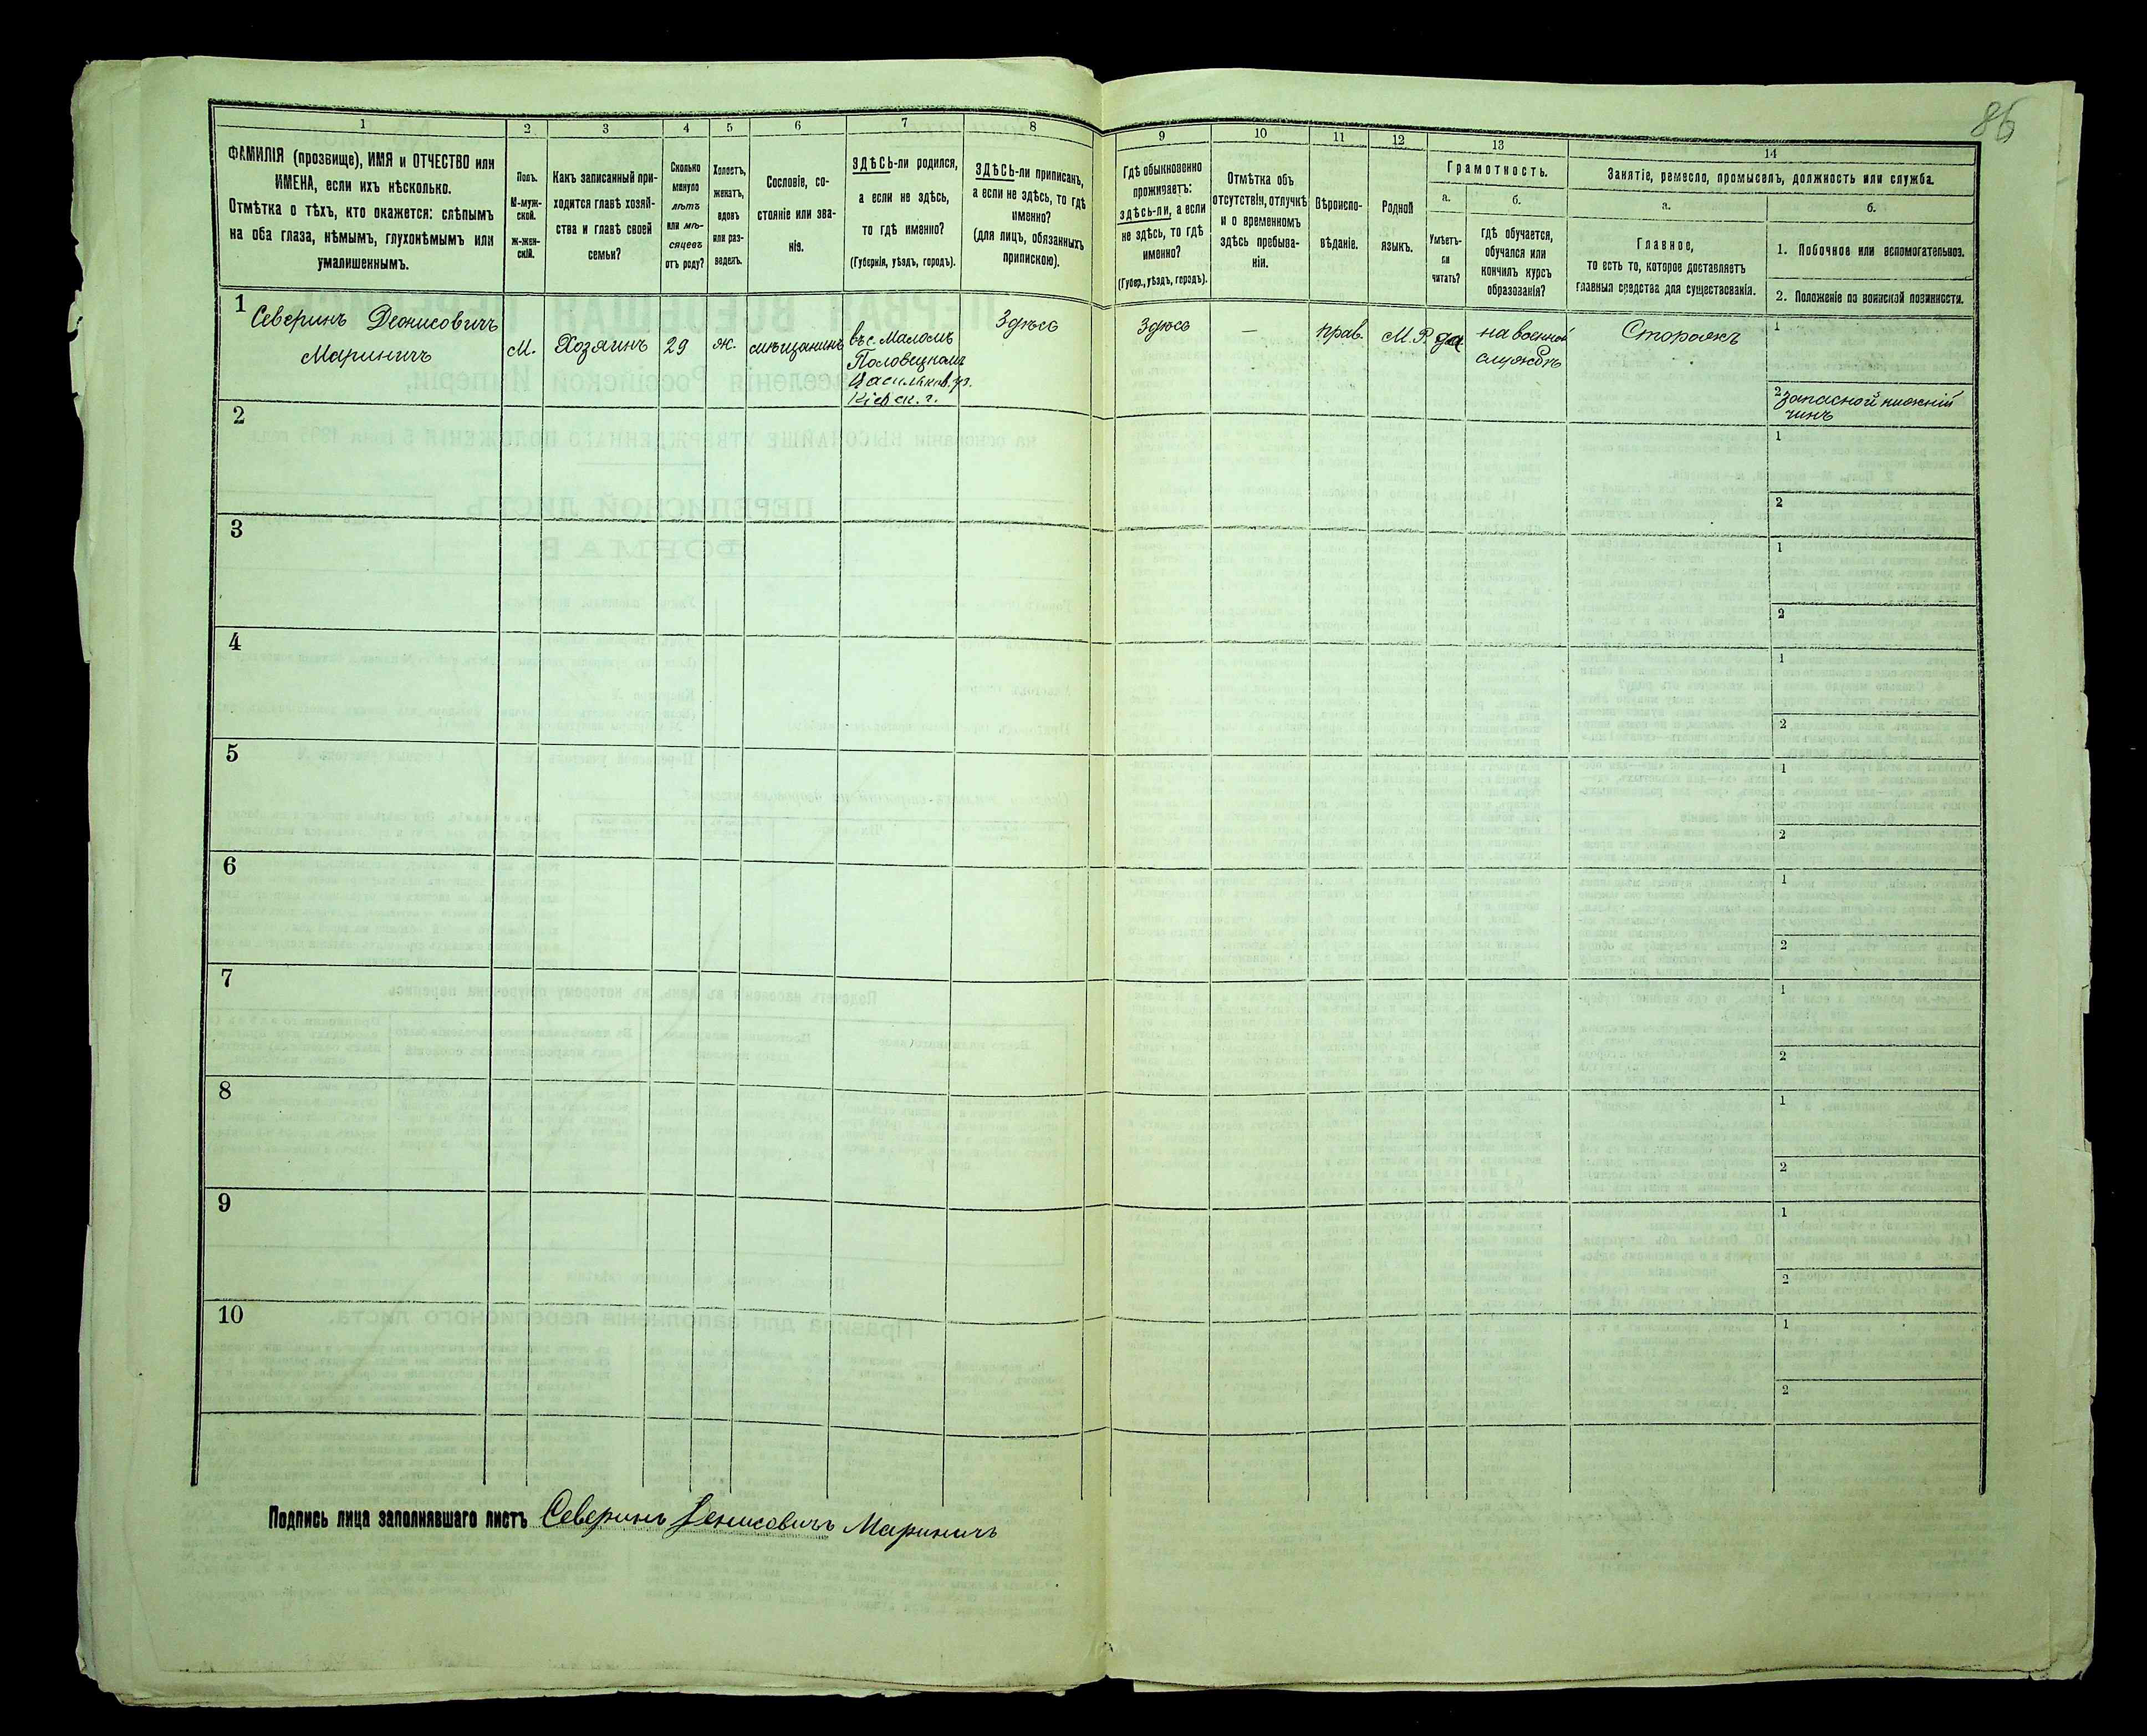 86
1
2
3
4
5
6
7
8
9
10
11
12
13
14
ФАМИЛІЯ (прозвище), ИМЯ и ОТЧЕСТВО или
ИМЕНА, если ихъ нѣсколько.
Отмѣтка о тѣхъ, кто окажется: слѣпымъ
на оба глаза, нѣмымъ, глухонѣмымъ или
умалишеннымъ.
Полъ.
М-муж-
ской.
ж-жен-
скій.
Какъ записанный при-
ходится главѣ хозяй-
ства и главѣ своей
семьи?
Сколько
минуло
лѣтъ
или мѣ-
сяцевъ
отъ роду?
Холостъ,
женатъ,
вдовъ
или раз-
веденъ.
Сословіе, со-
стояніе или зва-
ніе.
ЗДѢСЬ-ли родился,
а если не здѣсь,
то гдѣ именно?
(Губернія, уѣздъ, городъ).
ЗДѢСЬ-ли приписанъ,
а если не здѣсь, то гдѣ
именно?
(для лицъ, обязанныхъ
припискою).
Гдѣ обыкновенно
проживаетъ:
здѣсь-ли, а если
не здѣсь, то гдѣ
именно?
(Губер., уѣздъ, городъ).
Отмѣтка объ
отсутствіи, отлучкѣ
и о временномъ
здѣсь пребыва-
ніи.
Вѣроиспо-
вѣданіе.
Родной
языкъ.
Грамотность.
а.
Умѣетъ-
ли
читать?
б.
гдѣ обучается,
обучался или
кончилъ курсъ
образованія?
Занятіе, ремесло, промыселъ, должность или служба.
а.
Главное,
то есть то, которое доставляетъ
главныя средства для существованія.
б.
1. Побочное или вспомогательное.
2. Положеніе по воинской повинности.
1
Северинъ Деонисовичъ
Мариничъ
М.
Хозяинъ
29
ж.
мѣщанинъ
въ с. Маломъ
Половецкомъ
Васильков. уѣз.
Кіевск. г.
Здѣсь
Здѣсь
—
прав.
М. Р.
да
на военной
службѣ
Сторожъ
1
2 запасной нижній
чинъ
2
1
2
3
1
2
4
1
2
5
1
2
6
1
2
7
1
2
8
1
2
9
1
2
10
1
2
Подпись лица заполнявшаго листъ Северинъ Денисовичъ Мариничъ